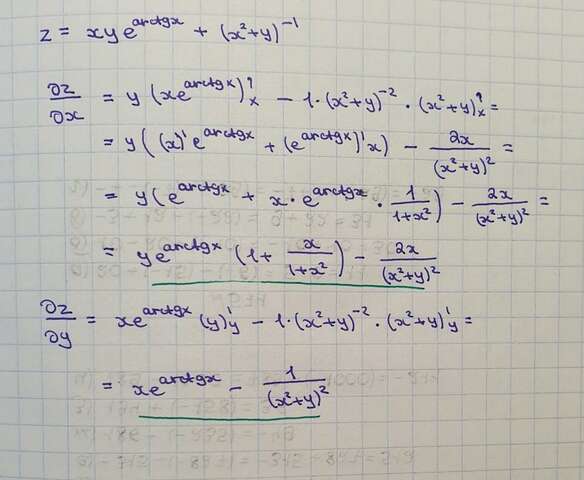 z = xye^{arctgx} + (x²+y)^{-1}
∂z/∂x = y (xe^{arctgx})'_x - 1·(x²+y)^{-2} · (x²+y)'_x =
= y((x)' e^{arctgx} + (e^{arctgx})' x) - 2x/(x²+y)² =
= y(e^{arctgx} + x·e^{arctgx} · 1/(1+x²)) - 2x/(x²+y)² =
= ye^{arctgx} (1 + x/(1+x²)) - 2x/(x²+y)²
∂z/∂y = xe^{arctgx} (y)'_y - 1·(x²+y)^{-2} · (x²+y)'_y =
= xe^{arctgx} - 1/(x²+y)²